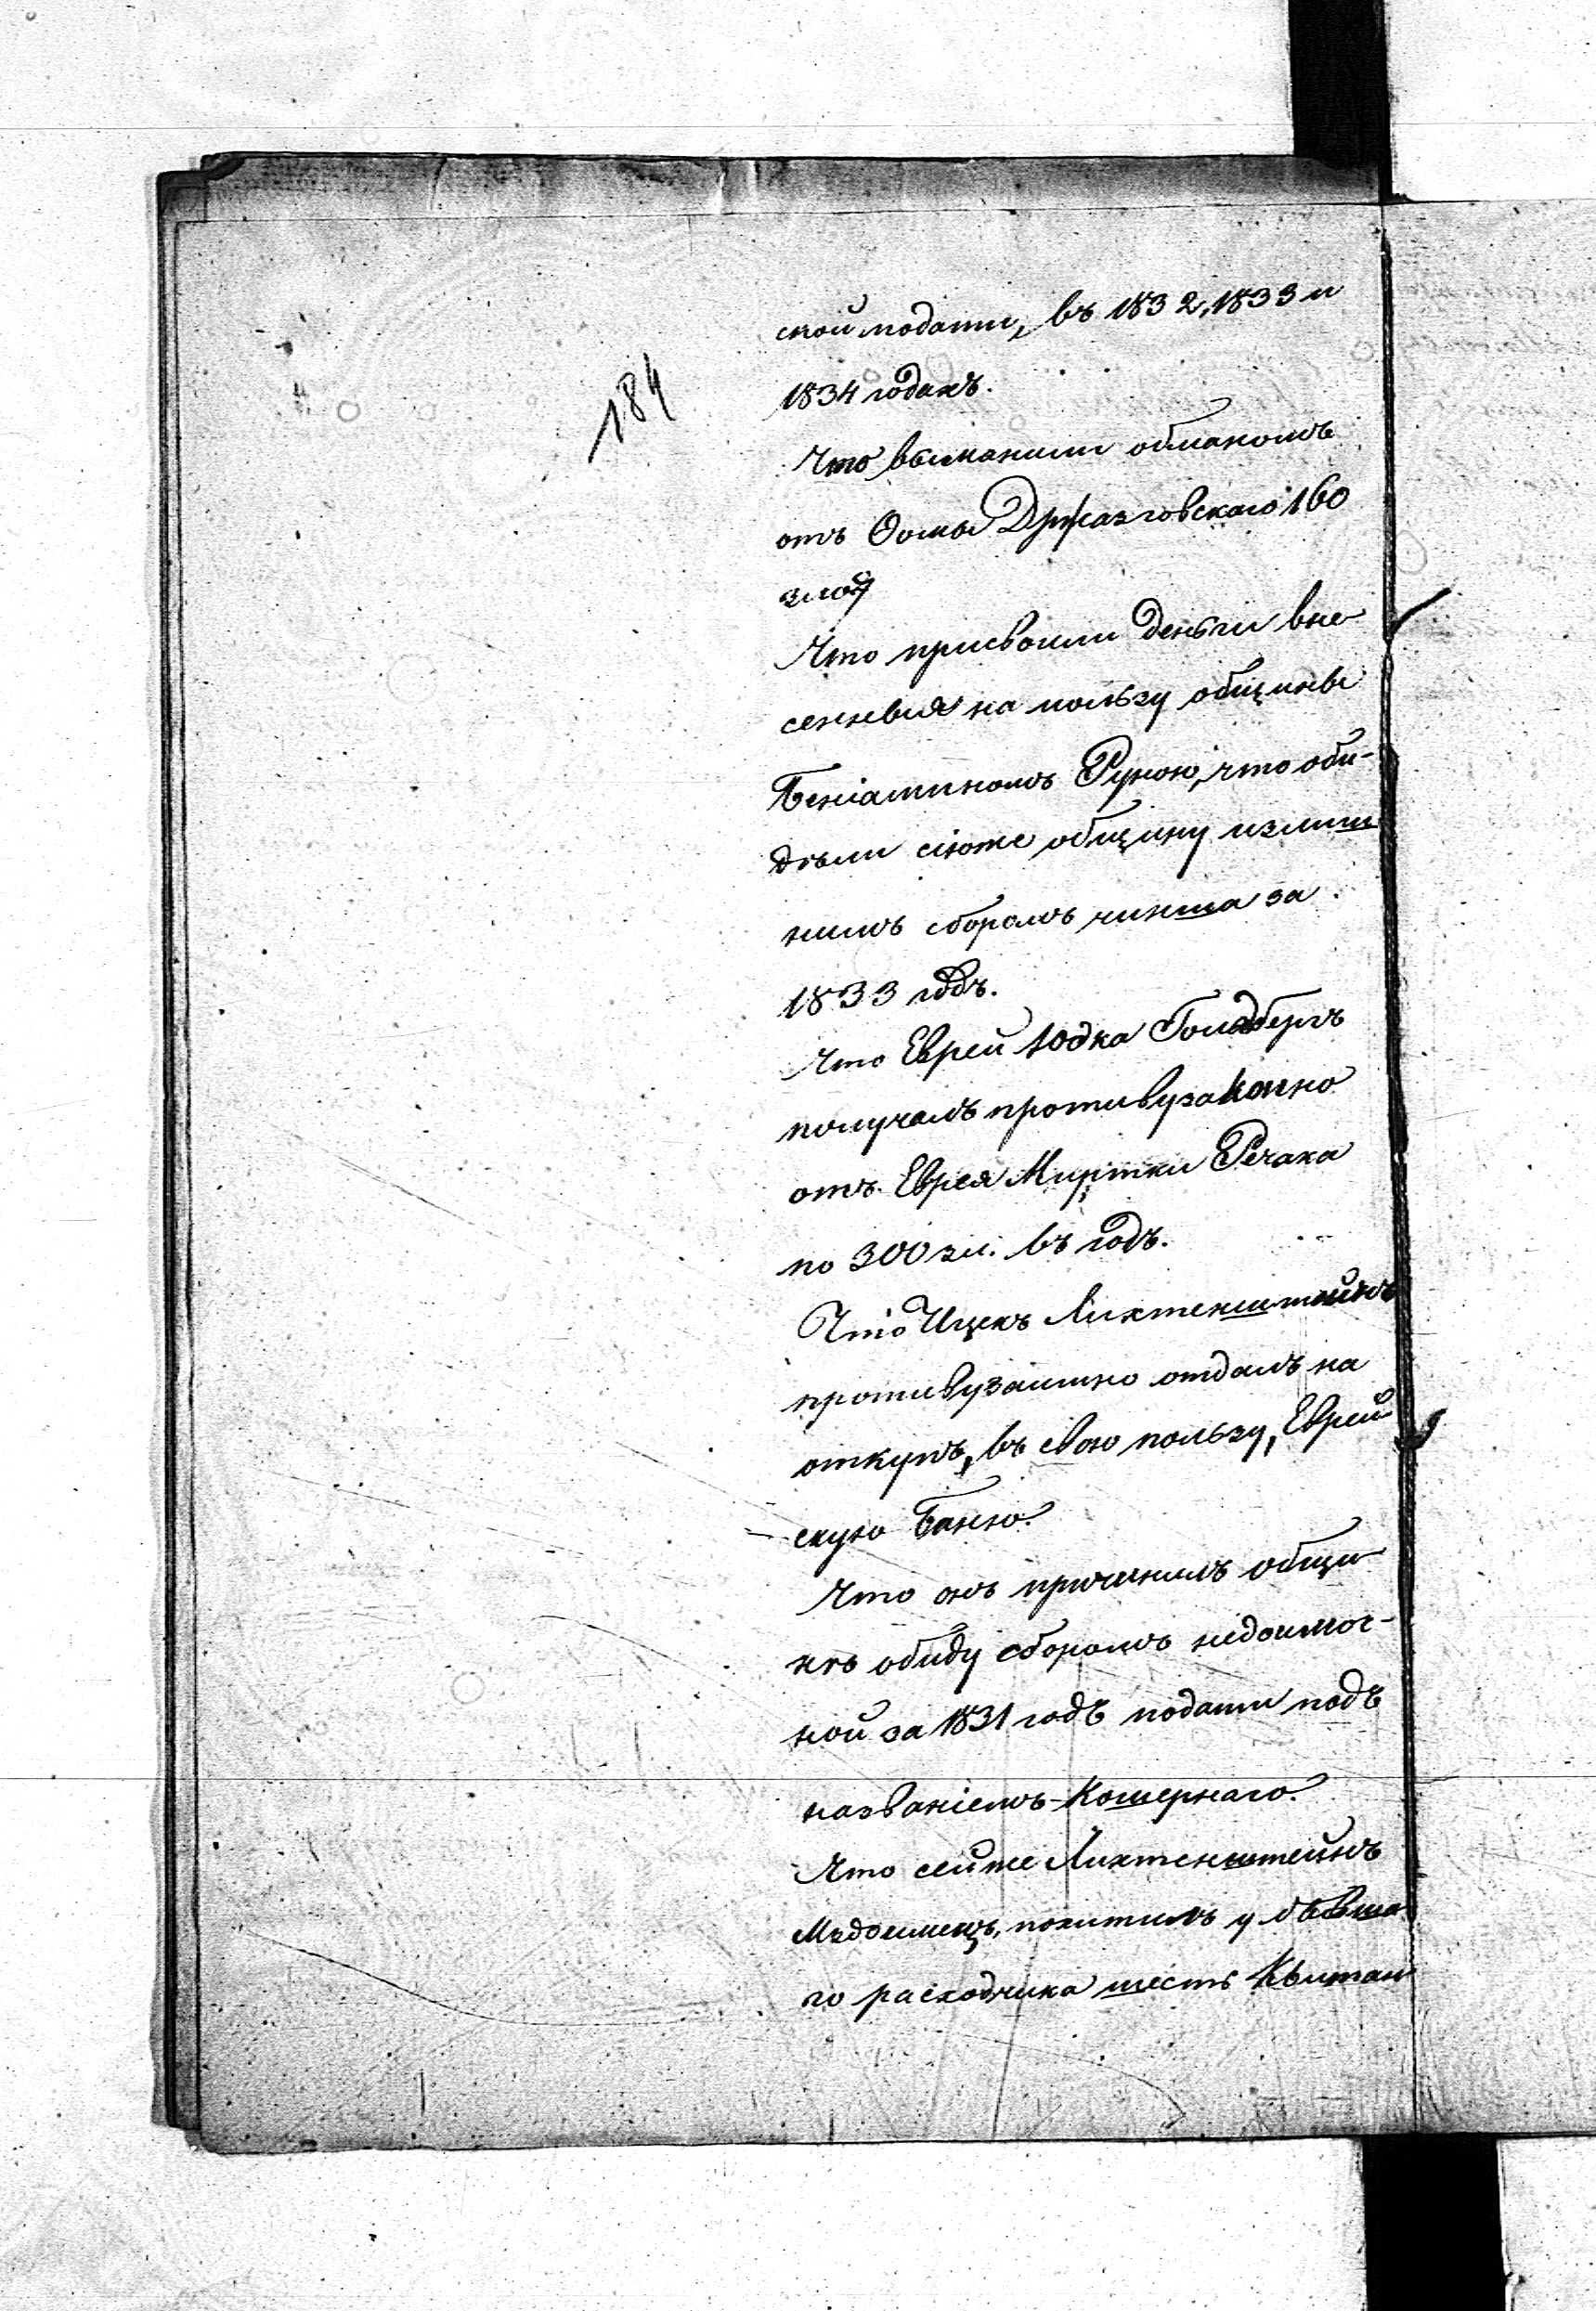 184
ской подати, въ 1832, 1833 и
1834 годахъ.
Что выманили обманомъ
отъ Ѳомы Држазговскаго 160
злот
Что присвоили деньги вне-
сенныя на пользу общины
Беніаминомъ Рукою, что оби-
дѣли сіюже общину излиш
нимъ сборомъ чинша за
1833 годъ.
Что Еврей Юдка Гольдбергъ
получалъ противузаконно
отъ Еврея Мортки Речака
по 300 зл. въ годъ.
Что Ицекъ Лихтенштейнъ
противузаконно отдалъ на
откупъ, въ свою пользу, Еврей-
скую Баню.
Что онъ причинилъ общи-
нѣ обиду сборомъ недоимоч-
ной за 1831 годъ подати подъ
названіемъ Кошернаго.
Что сейже Лихтенштейнъ
похитилъ у бывша
го расходчика шесть Квитан